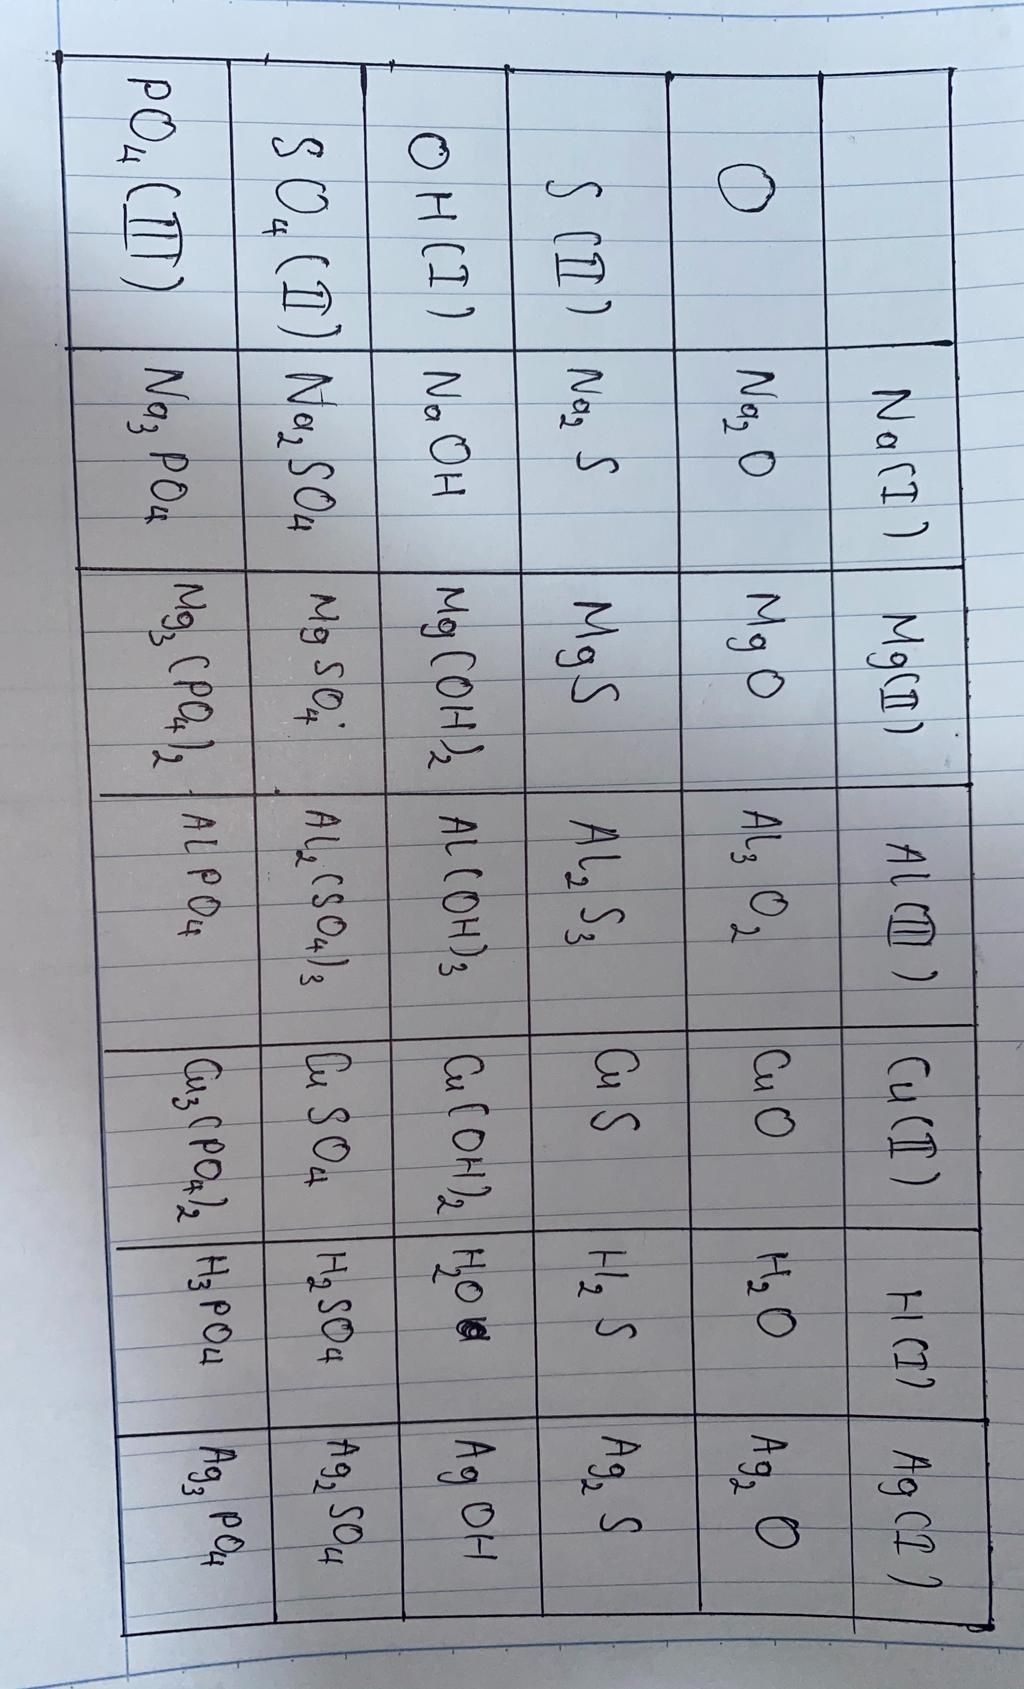 Na(I) Mg(II) Al(III) Cu(II) H(I) Ag(I)
O Na₂O MgO Al₃O₂ CuO H₂O Ag₂O
S(II) Na₂S MgS Al₂S₃ CuS H₂S Ag₂S
OH(I) NaOH Mg(OH)₂ Al(OH)₃ Cu(OH)₂ H₂O AgOH
SO₄(II) Na₂SO₄ MgSO₄ Al₂(SO₄)₃ CuSO₄ H₂SO₄ Ag₂SO₄
PO₄(III) Na₃PO₄ Mg₃(PO₄)₂ AlPO₄ Cu₃(PO₄)₂ H₃PO₄ Ag₃PO₄